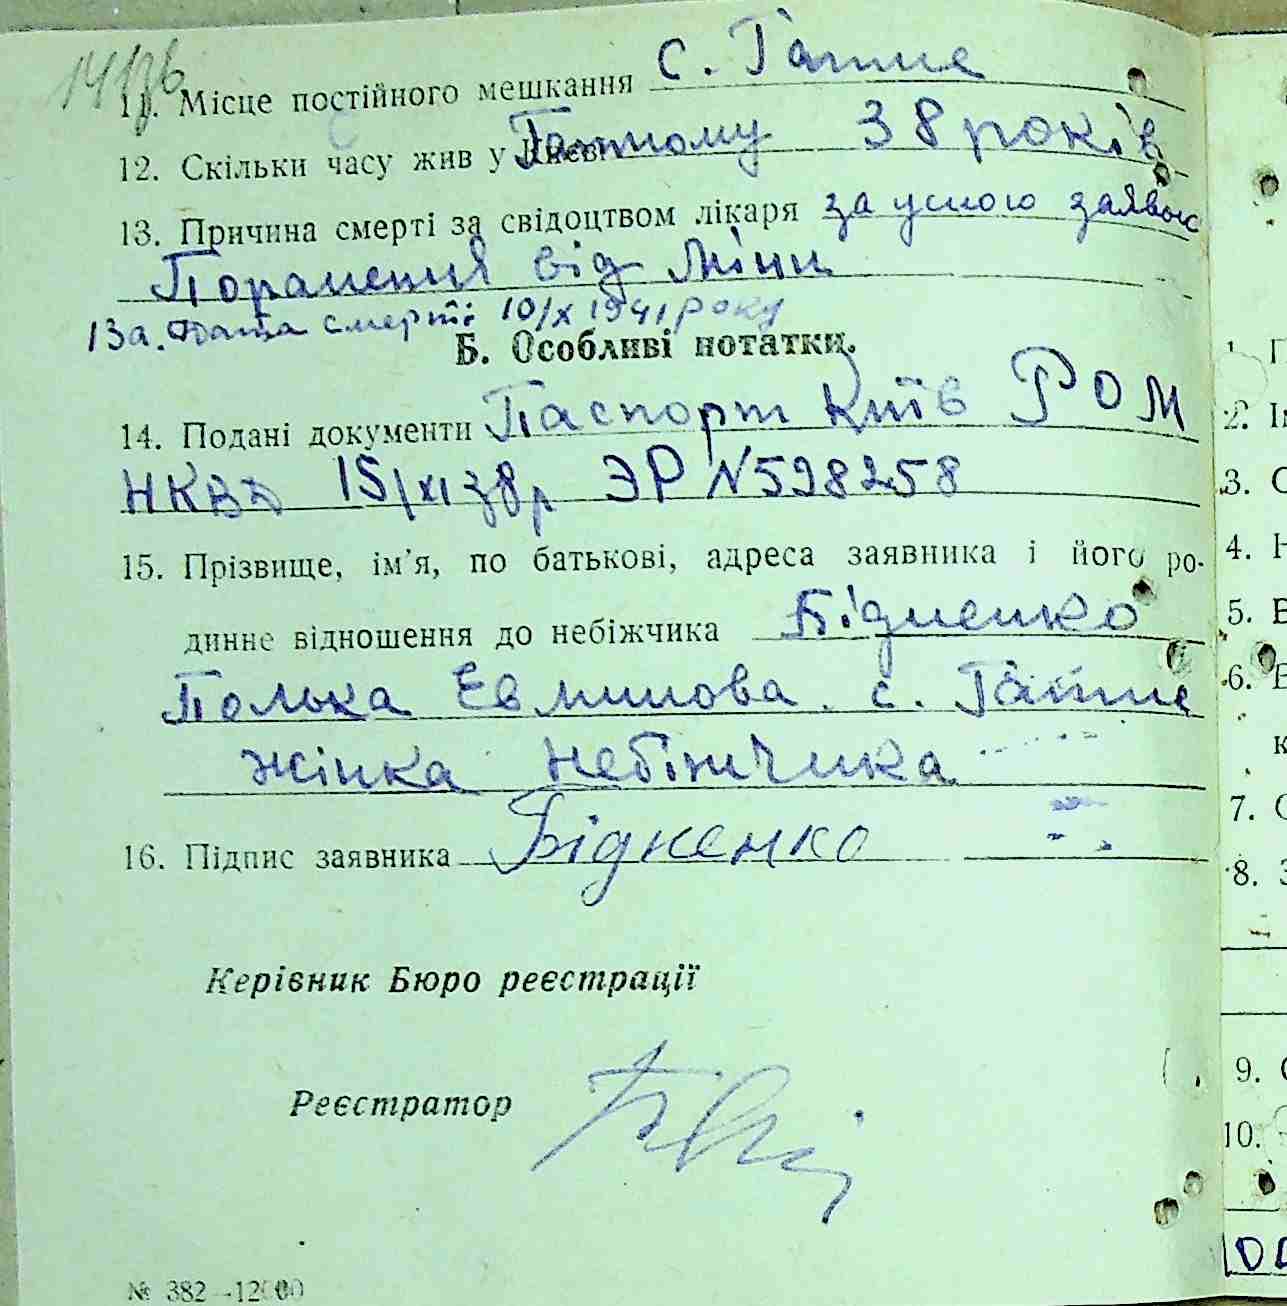 11. Місце постійного мешкання с. Гатне
12. Скільки часу жив у Києві Гатному 38 років
13. Причина смерті за свідоцтвом лікаря за усною заявою
Поранення від міни
13а. Дата смерті: 10/X 1941 року
Б. Особливі нотатки.
14. Подані документи Паспорт Київ РОМ
НКВД 15/XI 38 р ЭР N 598258
15. Прізвище, ім'я, по батькові, адреса заявника і його ро-
динне відношення до небіжчика Бідненко
Полька Евминова с. Гатне
жінка небіжчика
16. Підпис заявника Бідненко
Керівник Бюро реєстрації
Реєстратор
№ 382—12000
2.
3. С
4. Н
5. В
6. В
к
7. С
8. З
9. С
10.